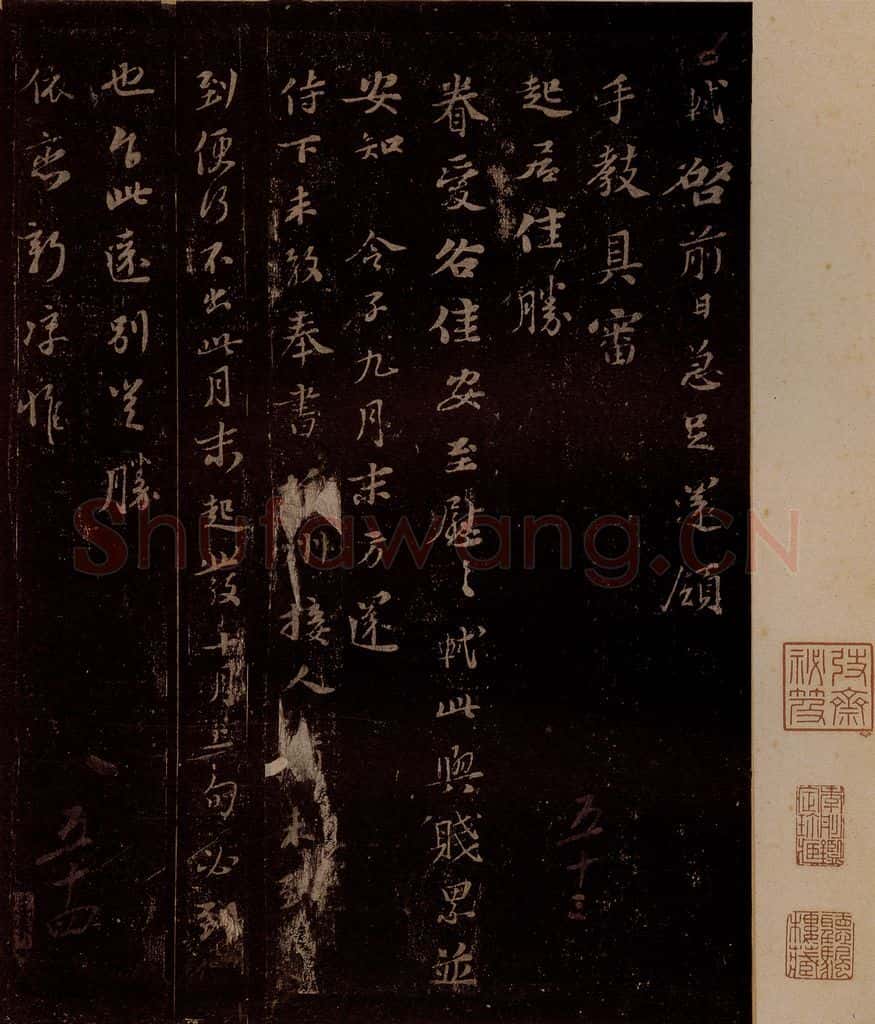 軾啓前日急足還領
手教具審
起居佳勝
眷愛各佳安至慰之軾此與賤累並
安知 令子九月末方還
侍下未敢奉書 接人
到便行不出此月末起此發十月上旬必到
也乍此遠別 勝
依戀新凉惟
五十三
五十四
Shufawang.CN